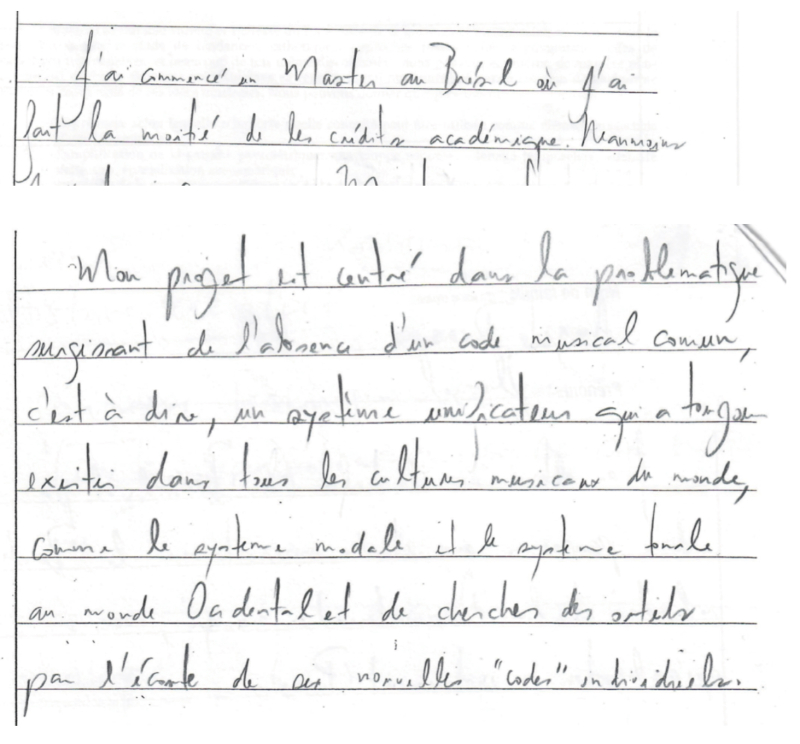 J'ai commencé un Master au Brésil où j'ai
fait la moitié de les crédits académique. Neanmoins
Mon projet est centré dans la problematique
surgissant de l'absence d'un code musical comun,
c'est à dire, un système unificateur qui a toujours
exister dans tous les cultures musicaux du monde,
comme le systeme modale et le systeme tonale
au monde Occidental et de chercher des outils
par l'écoute de ses nouvelles "codes" individuels.